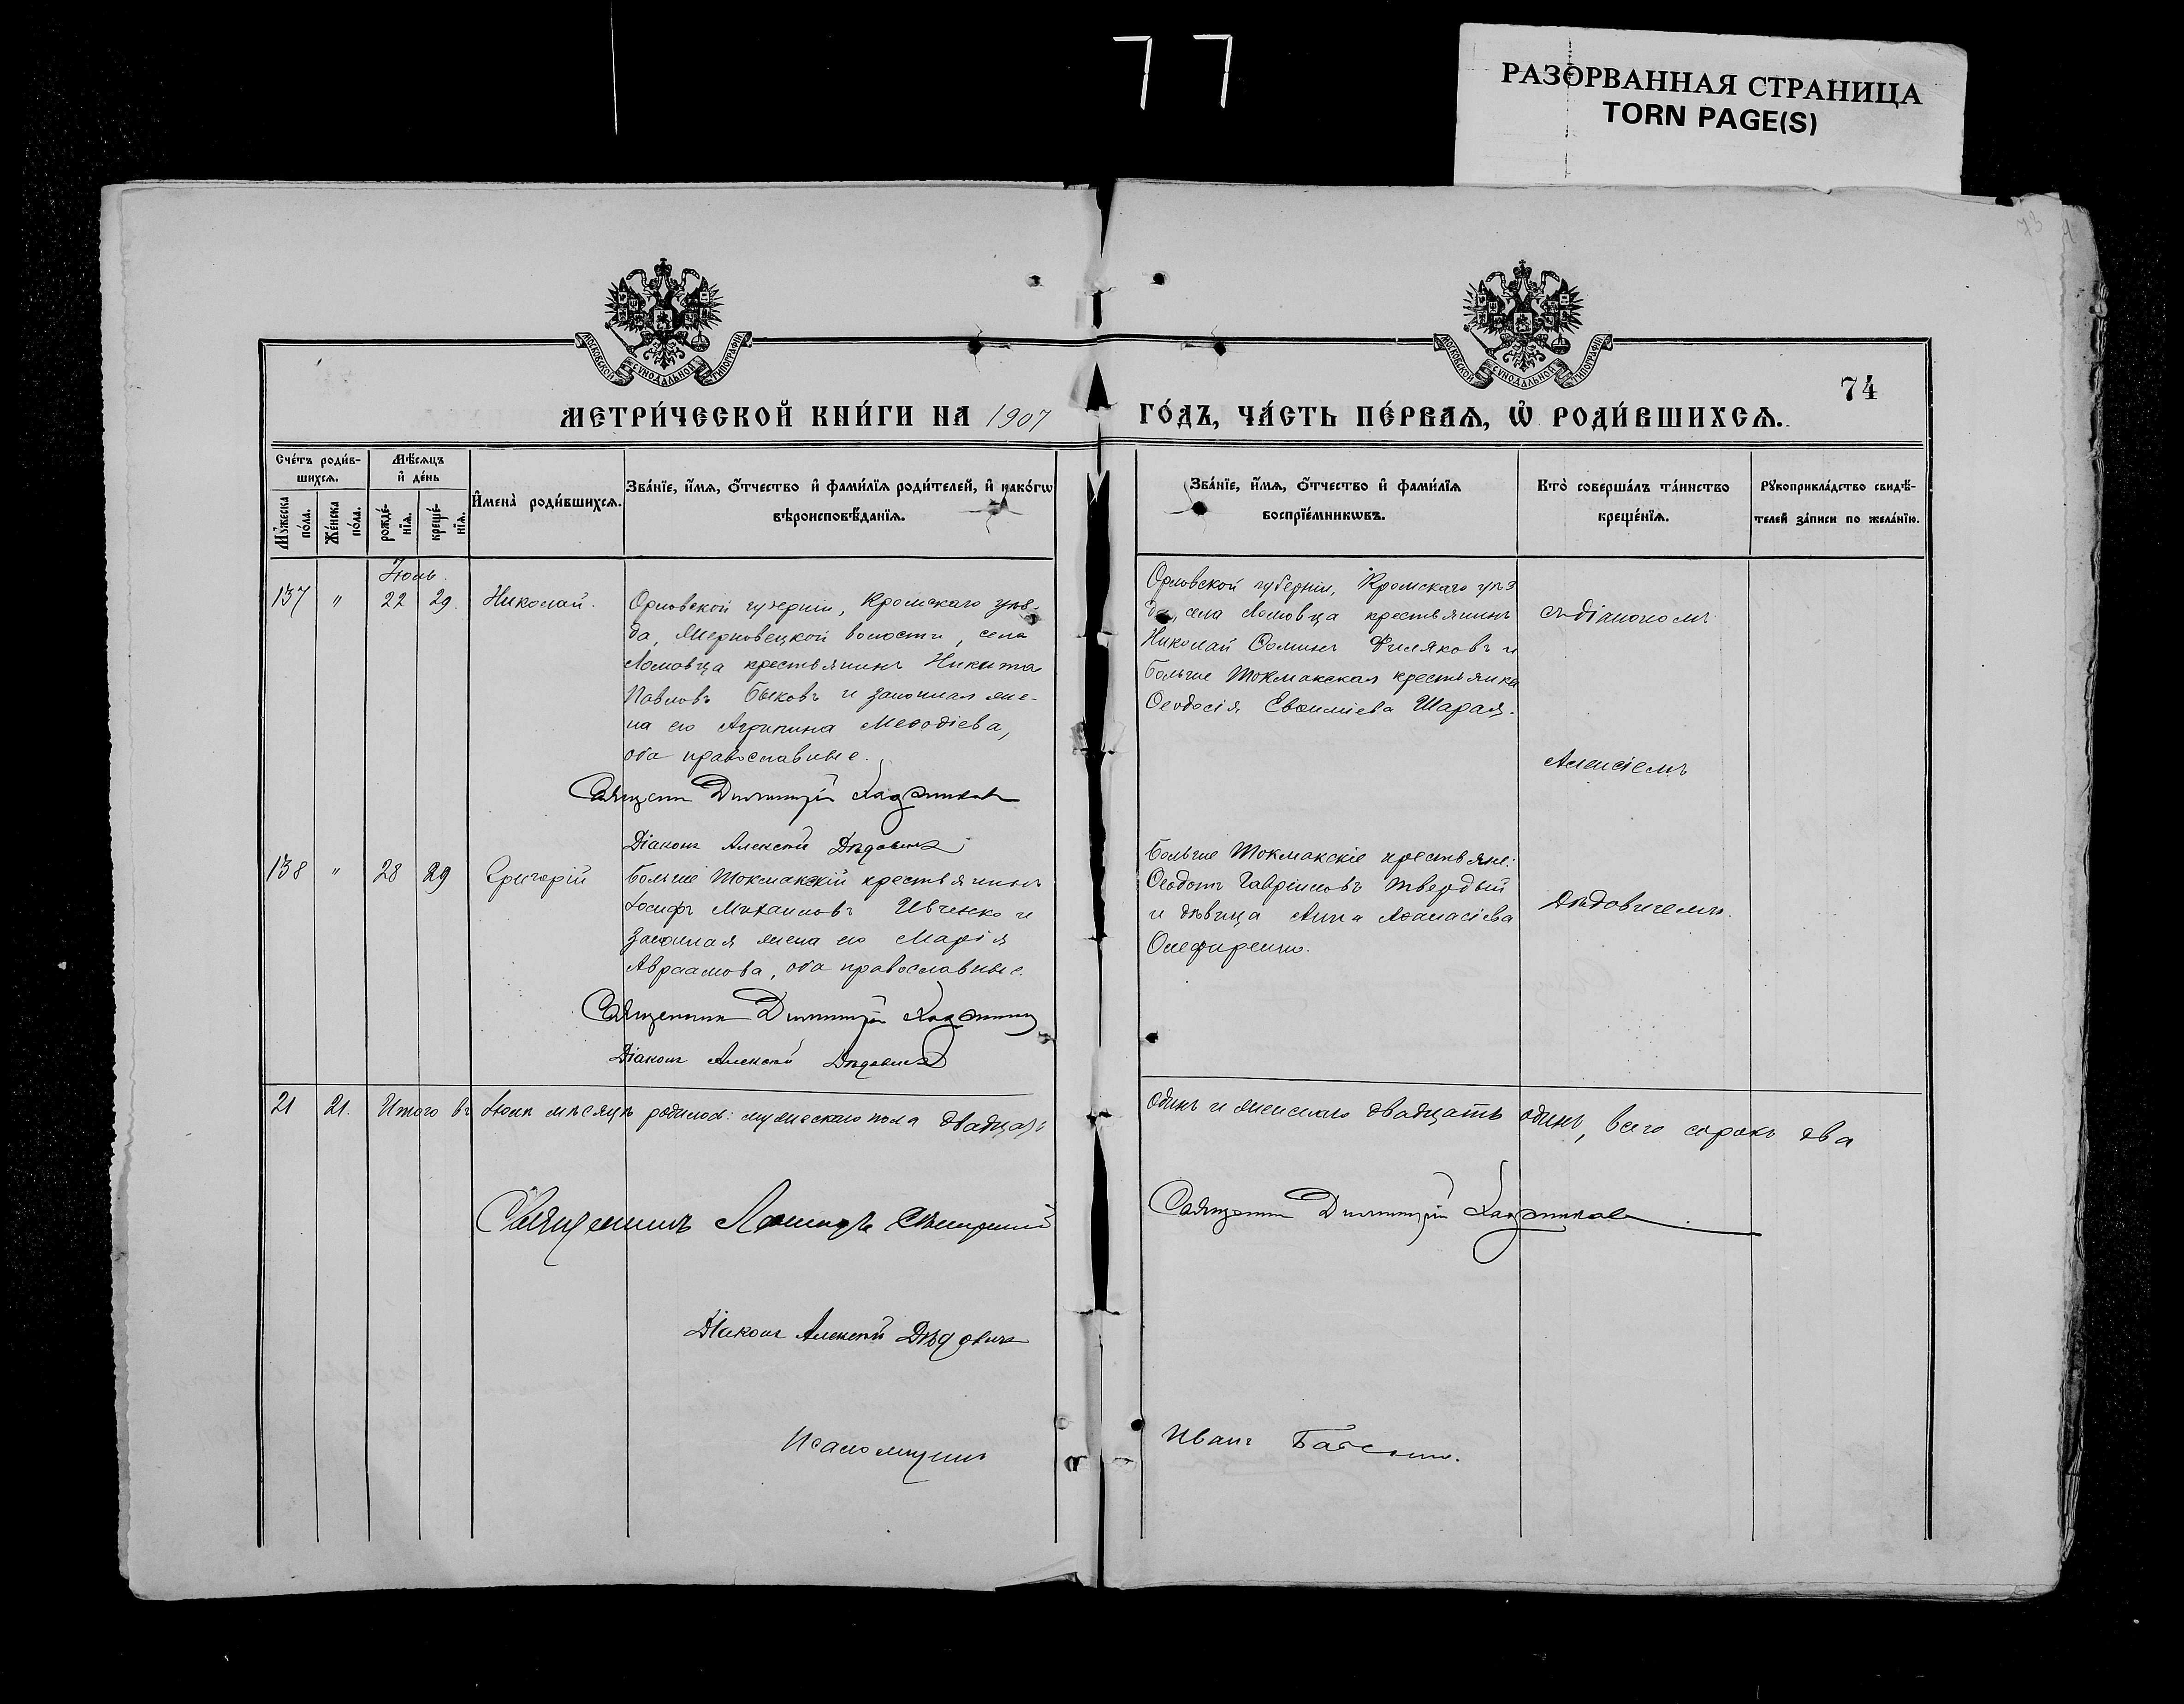 77
РАЗОРВАННАЯ СТРАНИЦА
TORN PAGE(S)
73
МОСКОВСКОЙ СѴНОДАЛЬНОЙ ТИПОГРАФІИ
МОСКОВСКОЙ СѴНОДАЛЬНОЙ ТИПОГРАФІИ
74
МЕТРИ́ЧЕСКОЙ КНИ́ГИ НА 1907
ГО́ДЪ, ЧА́СТЬ ПЕ́РВАѦ, Ѡ҆ РОДИ́ВШИХСѦ.
Сче́тъ роди́в-
шихсѧ.
Мѣ́сѧцъ
и҆ де́нь
Мꙋ́жеска
по́ла.
Же́нска
по́ла.
рожде́-
нїѧ.
креще́-
нїѧ.
И҆мена̀ роди́вшихсѧ.
Зва́нїе, и҆́мѧ, ѻ҆́тчество и҆ фами́лїѧ роди́телей, и҆ како́гѡ
вѣроисповѣ́данїѧ.
Зва́нїе, и҆́мѧ, ѻ҆́тчество и҆ фами́лїѧ
воспрїе́мникѡвъ.
Кто̀ соверша́лъ та́инство
креще́нїѧ.
Рꙋкоприкла́дство свидѣ́-
телей за́писи по жела́нїю.
Іюль.
137 " 22 29. Николай.
Орловской губерніи, Кромскаго уѣз-
да, Мерковецкой волости, села
Ломовца крестьянинъ Никита
Павловъ Быковъ и законная же-
на его Агрипина Меѳодіева,
оба православные.
Священ Димитрій
Діаконъ Алексѣй Дѣдовичъ
Орловской губерніи, Кромскаго уѣз
да, села Ломовца крестьянинъ
Николай Ѳоминъ Филяковъ и
Больше Токмакская крестьянка
Ѳеодосія Евѳиміева Шарая.
съ діакономъ
Алексіемъ
138 " 28 29 Григорій
Больше Токмакскій крестьянинъ
Іосифъ Михаиловъ Ивченко и
законная жена его Марія
Авраамова, оба православные.
Священник Димитрій
Діаконъ Алексѣй Дѣдовичъ
Больше Токмакскіе крестьяне:
Ѳеодотъ Гавріиловъ Твердый
и дѣвица Анна Аѳанасіева
Онефиренко.
Дѣдовичемъ.
21 21. Итого въ Іюлѣ мѣсяцѣ родилось: мужескаго пола двадцать
одинъ и женскаго двадцать одинъ, всего сорокъ два
Священникъ
Священник Димитрій
Діаконъ Алексѣй Дѣдовичъ
Псаломщикъ
Иванъ